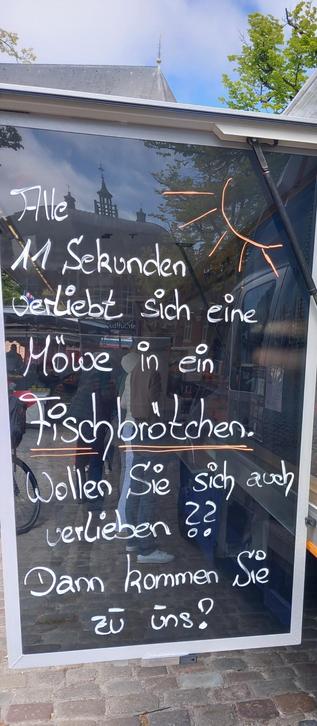 Alle
11 Sekunden
verliebt sich eine
Möwe in ein
Fischbrötchen.
Wollen Sie sich auch
verlieben ??
Dann kommen Sie
zū ūns?